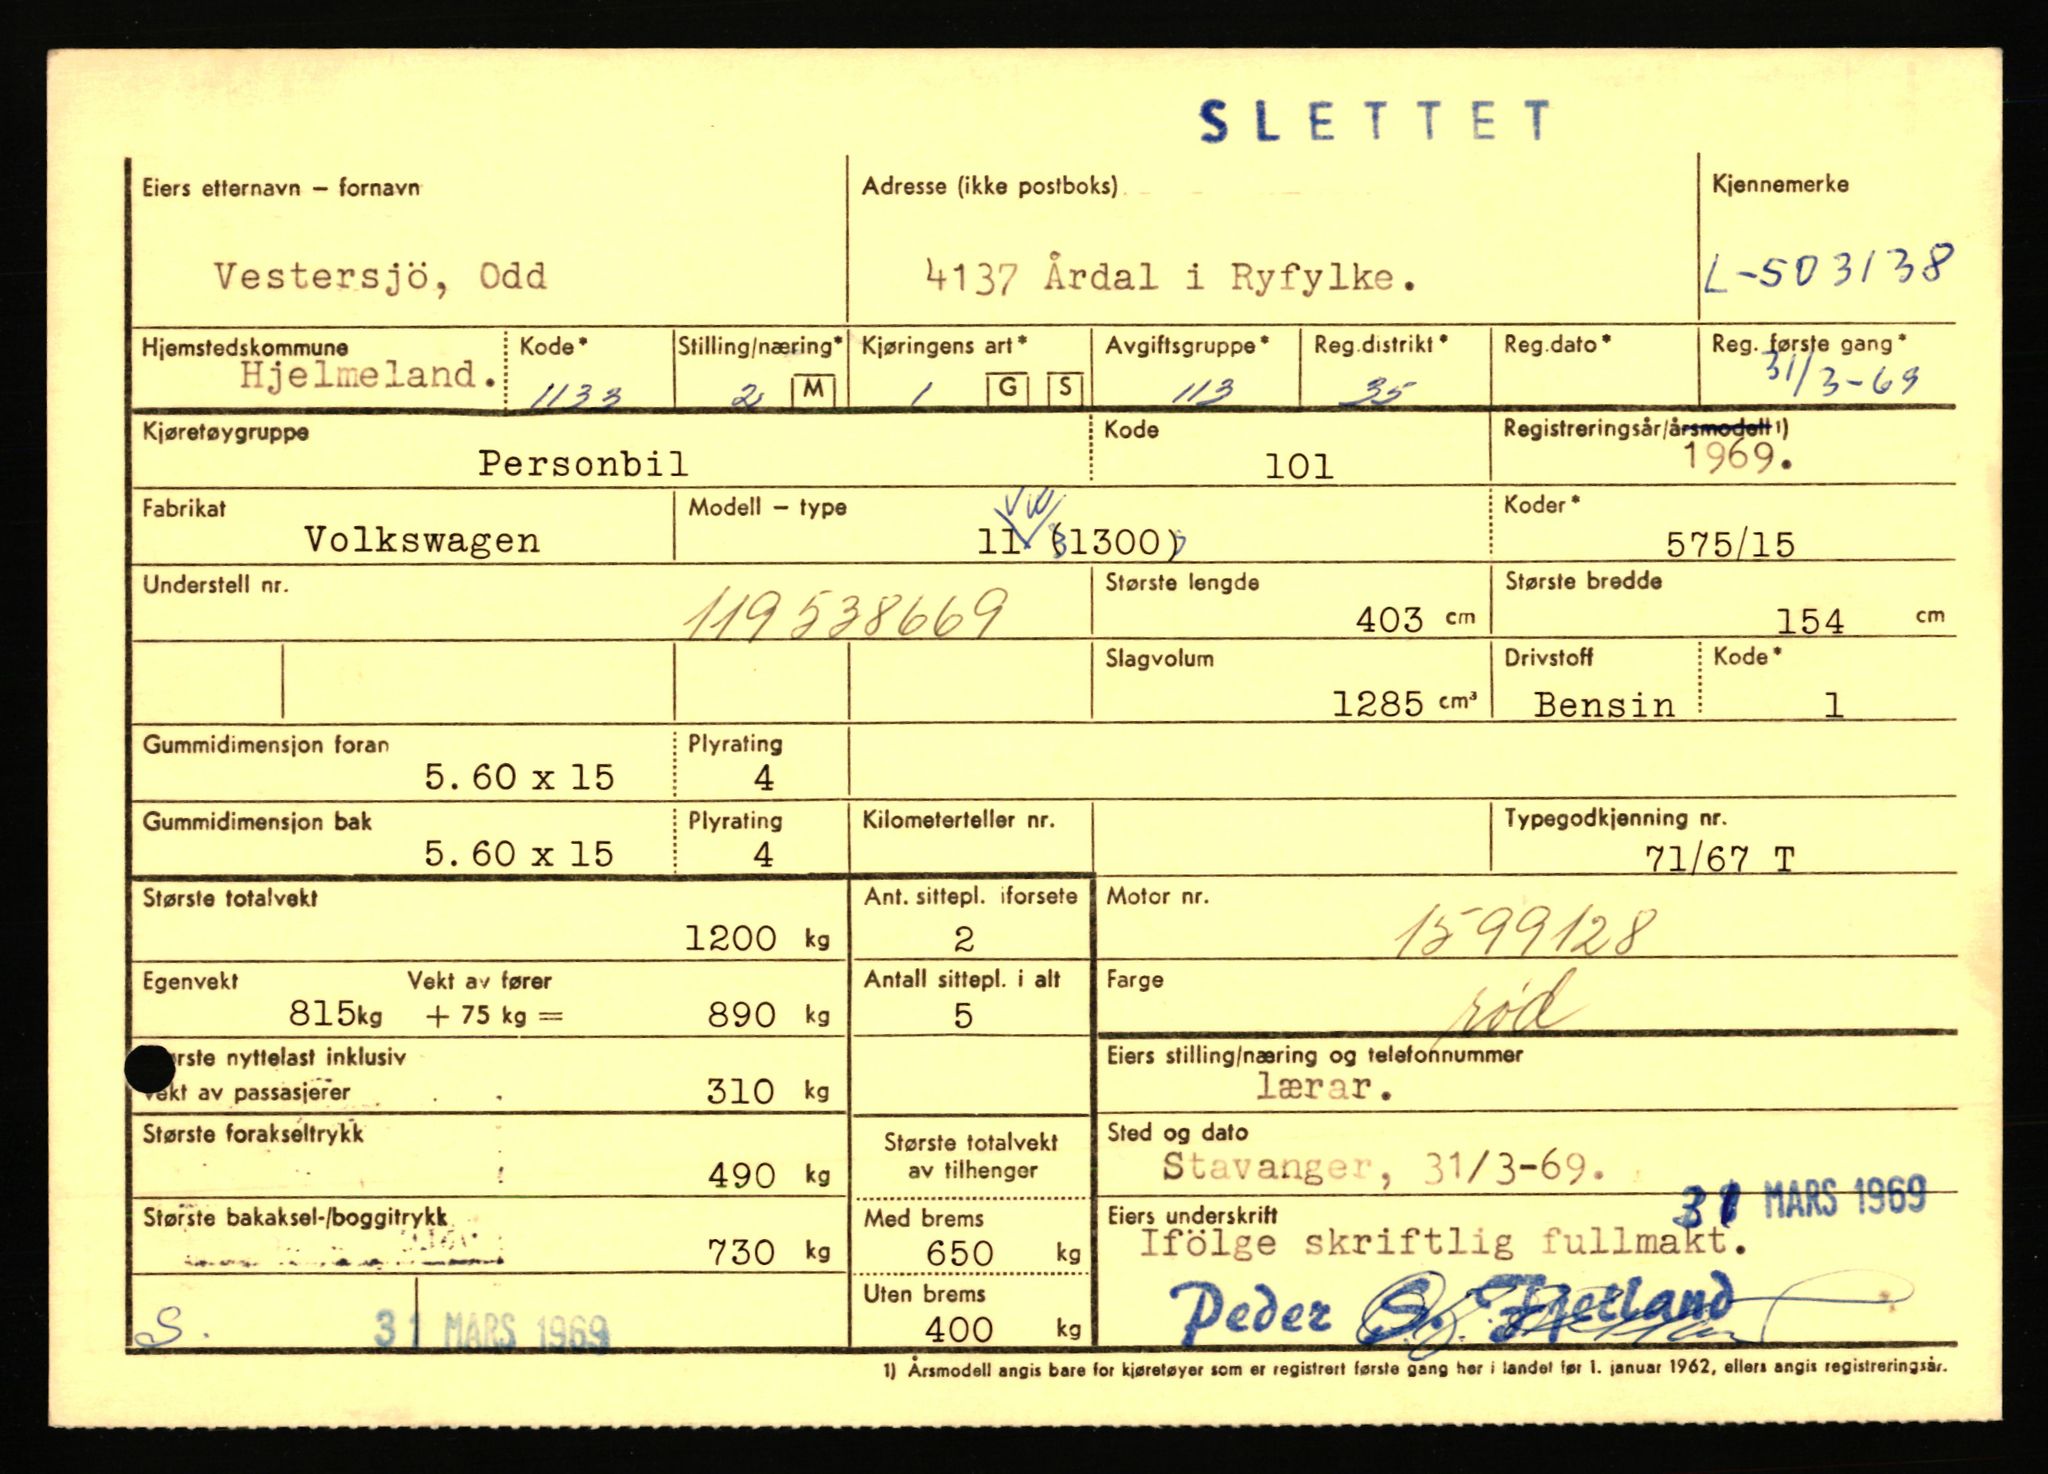 SLETTET
Eiers etternavn – fornavn
Adresse (ikke postboks)
Kjennemerke
Vestersjö, Odd
4137 Årdal i Ryfylke.
L-503138
Hjemstedskommune
Kode*
Stilling/næring*
Kjøringens art*
Avgiftsgruppe*
Reg.distrikt*
Reg.dato*
Reg. første gang*
Hjelmeland.
1133
2 M
1 G S
113
35
31/3-69
Kjøretøygruppe
Kode
Registreringsår/årsmodell 1)
Personbil
101
1969.
Fabrikat
Modell – type
Koder*
Volkswagen
VW
11 (1300)
575/15
Understell nr.
Største lengde
Største bredde
119538669
403 cm
154 cm
Slagvolum
Drivstoff
Kode*
1285 cm³
Bensin
1
Gummidimensjon foran
Plyrating
5.60 x 15
4
Gummidimensjon bak
Plyrating
Kilometerteller nr.
Typegodkjenning nr.
5.60 x 15
4
71/67 T
Største totalvekt
Ant. sittepl. iforsete
Motor nr.
1200 kg
2
1599128
Egenvekt
Vekt av fører
Antall sittepl. i alt
Farge
815 kg + 75 kg = 890 kg
5
rød
ørste nyttelast inklusiv
vekt av passasjerer
310 kg
Eiers stilling/næring og telefonnummer
lærar.
Største forakseltrykk
490 kg
Største totalvekt
av tilhenger
Sted og dato
Stavanger, 31/3-69.
31 MARS 1969
Største bakaksel-/boggitrykk
730 kg
Med brems
650 kg
Eiers underskrift
Ifölge skriftlig fullmakt.
Uten brems
400 kg
Peder S. Fjetland
S.
31 MARS 1969
1) Årsmodell angis bare for kjøretøyer som er registrert første gang her i landet før 1. januar 1962, ellers angis registreringsår.